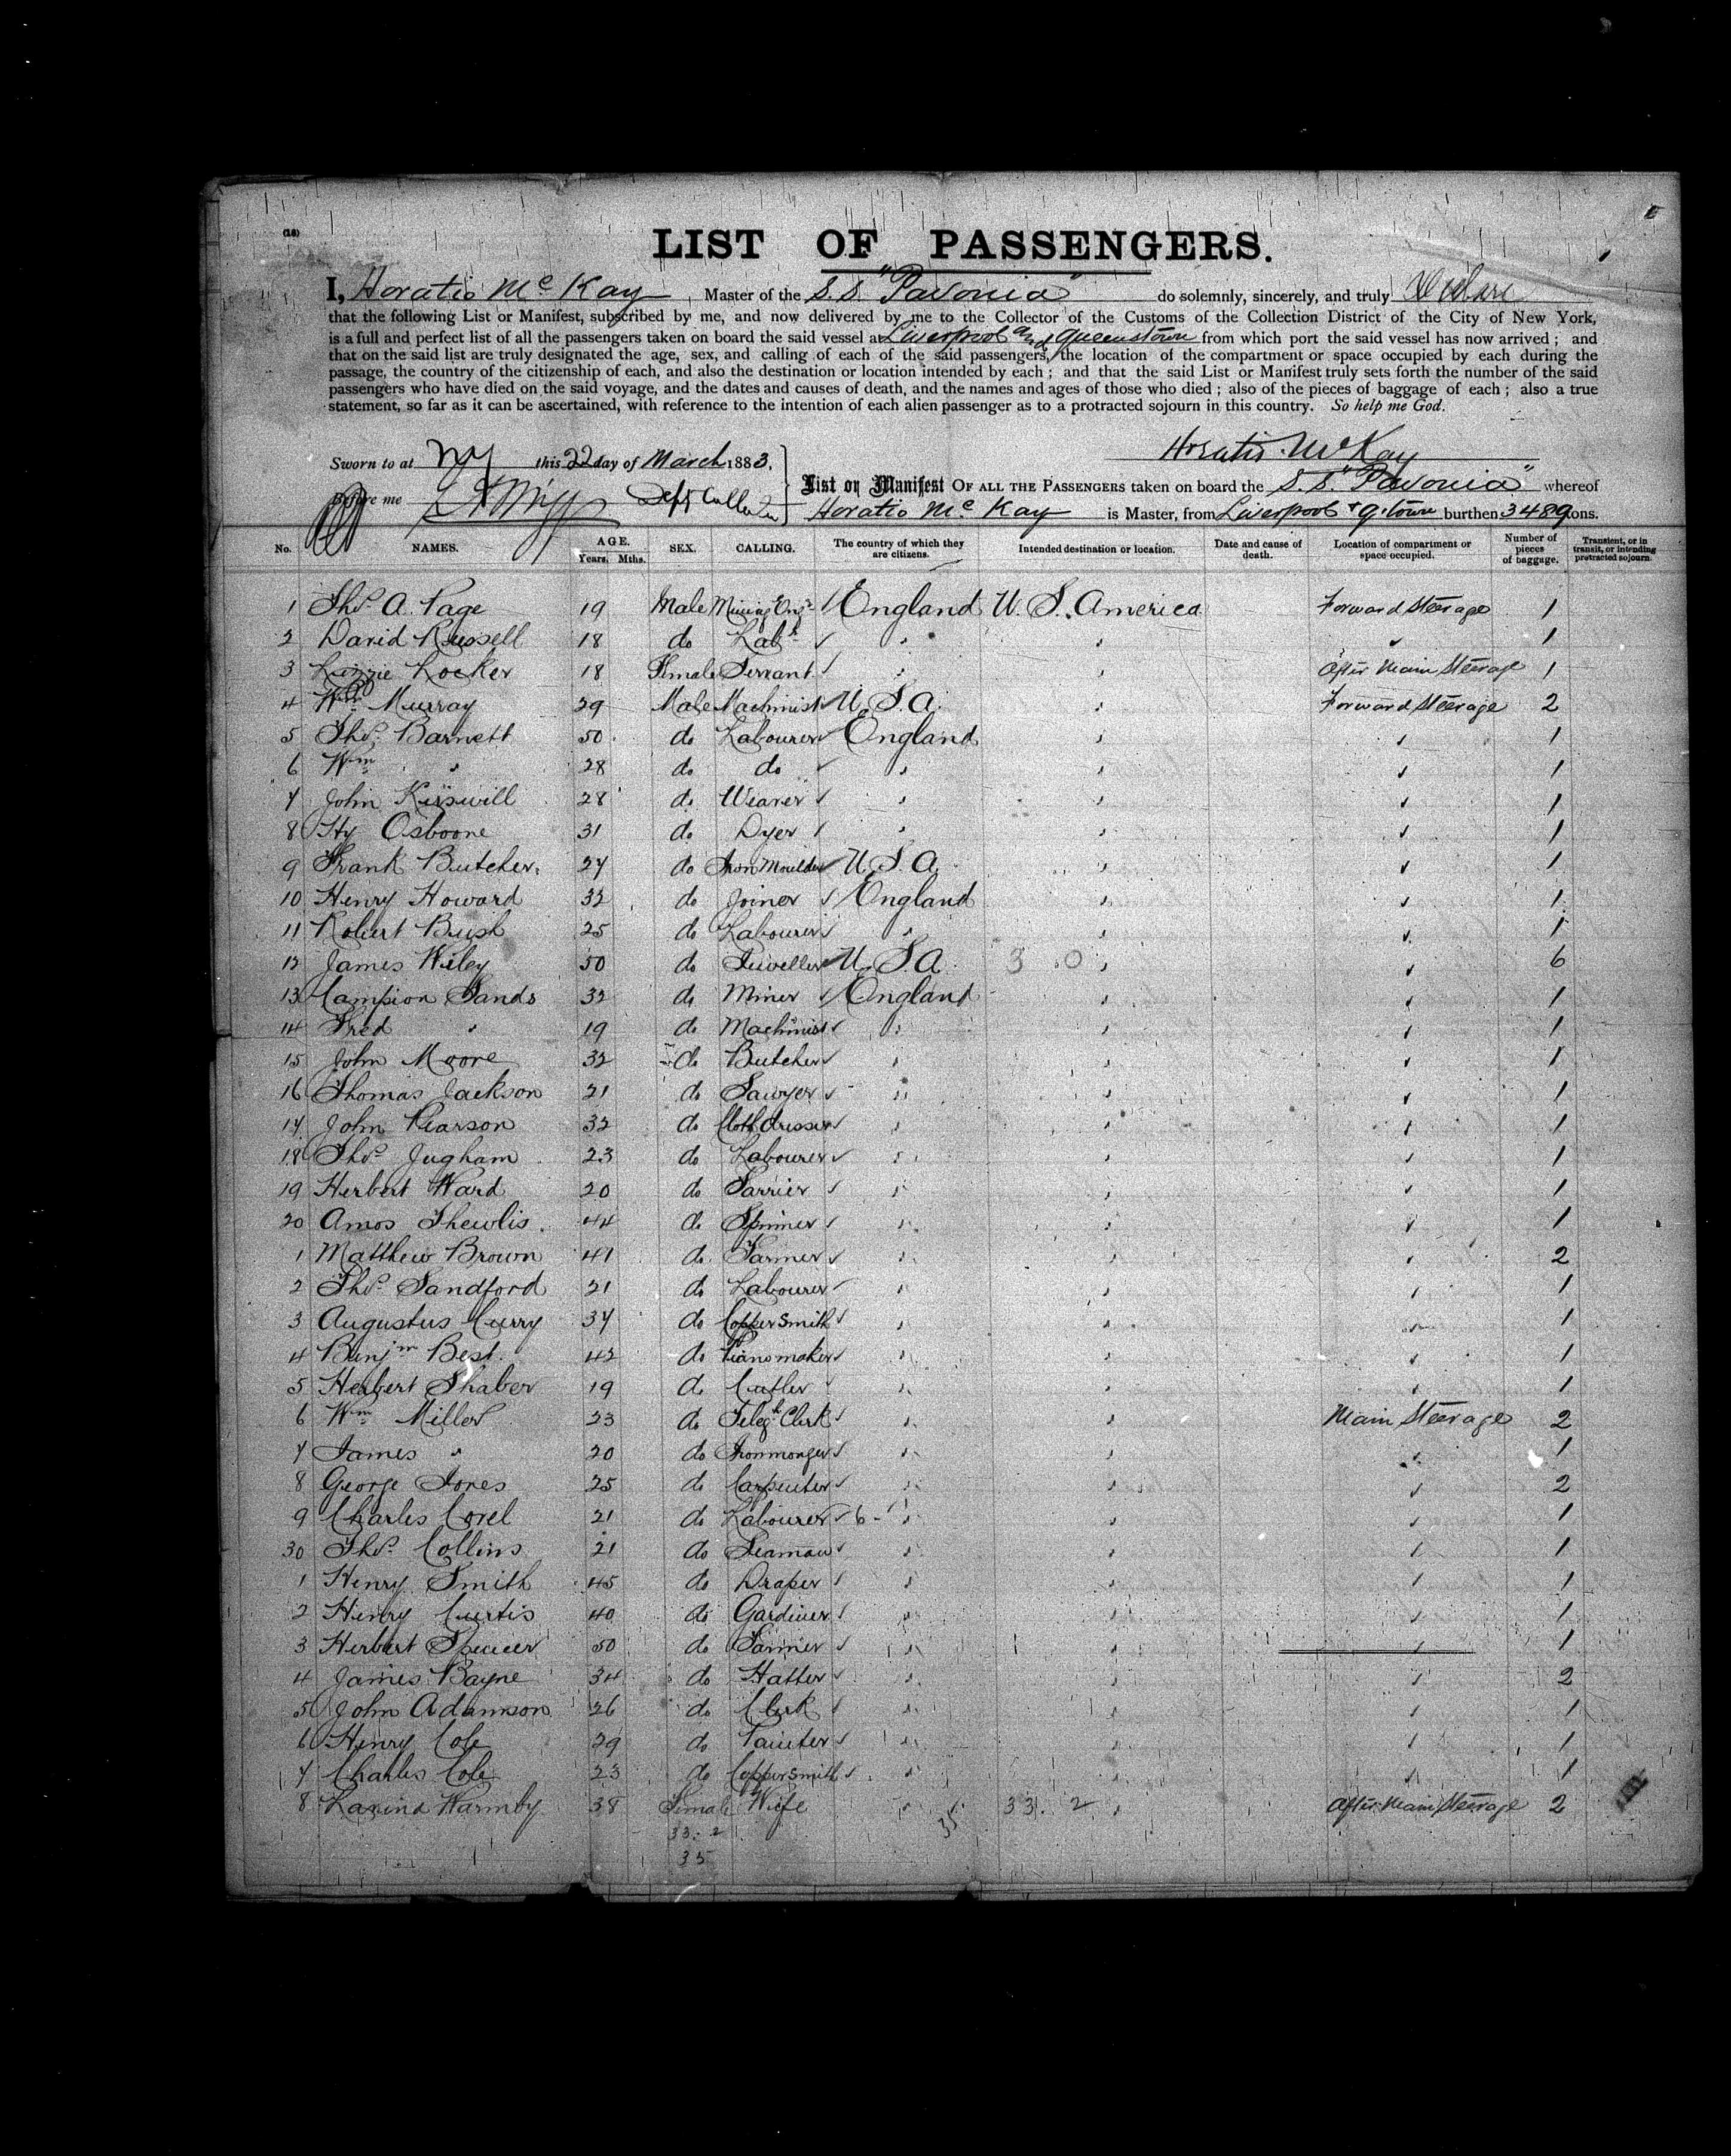 (18)
LIST OF PASSENGERS.
I, Horatio Mc Kay, Master of the S.S. "Pavonia" do solemnly, sincerely, and truly declare
that the following List or Manifest, subscribed by me, and now delivered by me to the Collector of the Customs of the Collection District of the City of New York,
is a full and perfect list of all the passengers taken on board the said vessel at Liverpool and Queenstown from which port the said vessel has now arrived; and
that on the said list are truly designated the age, sex, and calling of each of the said passengers, the location of the compartment or space occupied by each during the
passage, the country of the citizenship of each, and also the destination or location intended by each; and that the said List or Manifest truly sets forth the number of the said
passengers who have died on the said voyage, and the dates and causes of death, and the names and ages of those who died; also of the pieces of baggage of each; also a true
statement, so far as it can be ascertained, with reference to the intention of each alien passenger as to a protracted sojourn in this country. So help me God.
Horatio McKay
Sworn to at NY this 22 day of March 1883,
Before me
List or Manifest OF ALL THE PASSENGERS taken on board the S.S. "Pavonia" whereof
Horatio Mc Kay is Master, from Liverpool & Q.town burthen 3489 tons.
No. NAMES. AGE. Years. Mths. SEX. CALLING. The country of which they are citizens. Intended destination or location. Date and cause of death. Location of compartment or space occupied. Number of pieces of baggage. Transient, or in transit, or intending protracted sojourn.
1 Thos. A. Page 19 Male Mining Engr England U. S. America Forward Steerage 1
2 David Russell 18 do Labr " " " 1
3 Lizzie Locker 18 Female Servant " " After Main Steerage 1
4 Wm Murray 29 Male Machinist U.S.A. " Forward Steerage 2
5 Thos. Barnett 50 do Labourer England " " 1
6 Wm " 28 do do " " " 1
7 John Kerswill 28 do Weaver " " " 1
8 Hy Osboone 31 do Dyer " " " 1
9 Frank Butcher 27 do Iron Moulder U.S.A. " " 1
10 Henry Howard 32 do Joiner England " " 1
11 Robert Bush 25 do Labourer " " " 1
12 James Wiley 50 do Jeweller U.S.A. 3 0 " " 6
13 Campion Sands 32 do Miner England " " 1
14 Fred " 19 do Machinist " " " 1
15 John Moore 32 do Butcher " " " 1
16 Thomas Jackson 21 do Sawyer " " " 1
17 John Pearson 32 do Cloth dresser " " " 1
18 Thos. Jugham 23 do Labourer " " " 1
19 Herbert Ward 20 do Farrier " " " 1
20 Amos Thewlis 44 do Spinner " " " 1
1 Matthew Brown 41 do Farmer " " " 2
2 Thos. Sandford 21 do Labourer " " " 1
3 Augustus Curry 37 do Copper Smith " " " 1
4 Benjm Best 42 do Piano maker " " " 1
5 Herbert Shaber 19 do Cutler " " " 1
6 Wm Miller 23 do Telegh Clerk " " Main Steerage 2
7 James " 20 do Ironmonger " " " 1
8 George Jones 25 do Carpenter " " " 2
9 Charles Corel 21 do Labourer 6 - " " " 1
30 Thos. Collins 21 do Seaman " " " 1
1 Henry Smith 45 do Draper " " " 1
2 Henry Curtis 40 do Gardiner " " " 1
3 Herbert Spencer 50 do Farmer " " " 1
4 James Bayne 34 do Hatter " " " 2
5 John Adamson 26 do Clerk " " " 1
6 Henry Cole 29 do Painter " " " 1
7 Charles Cole 23 do Copper Smith " " " 1
8 Lavina Warmby 38 Female Wife " 33. 2 " After Main Steerage 2
33. 2 35
35